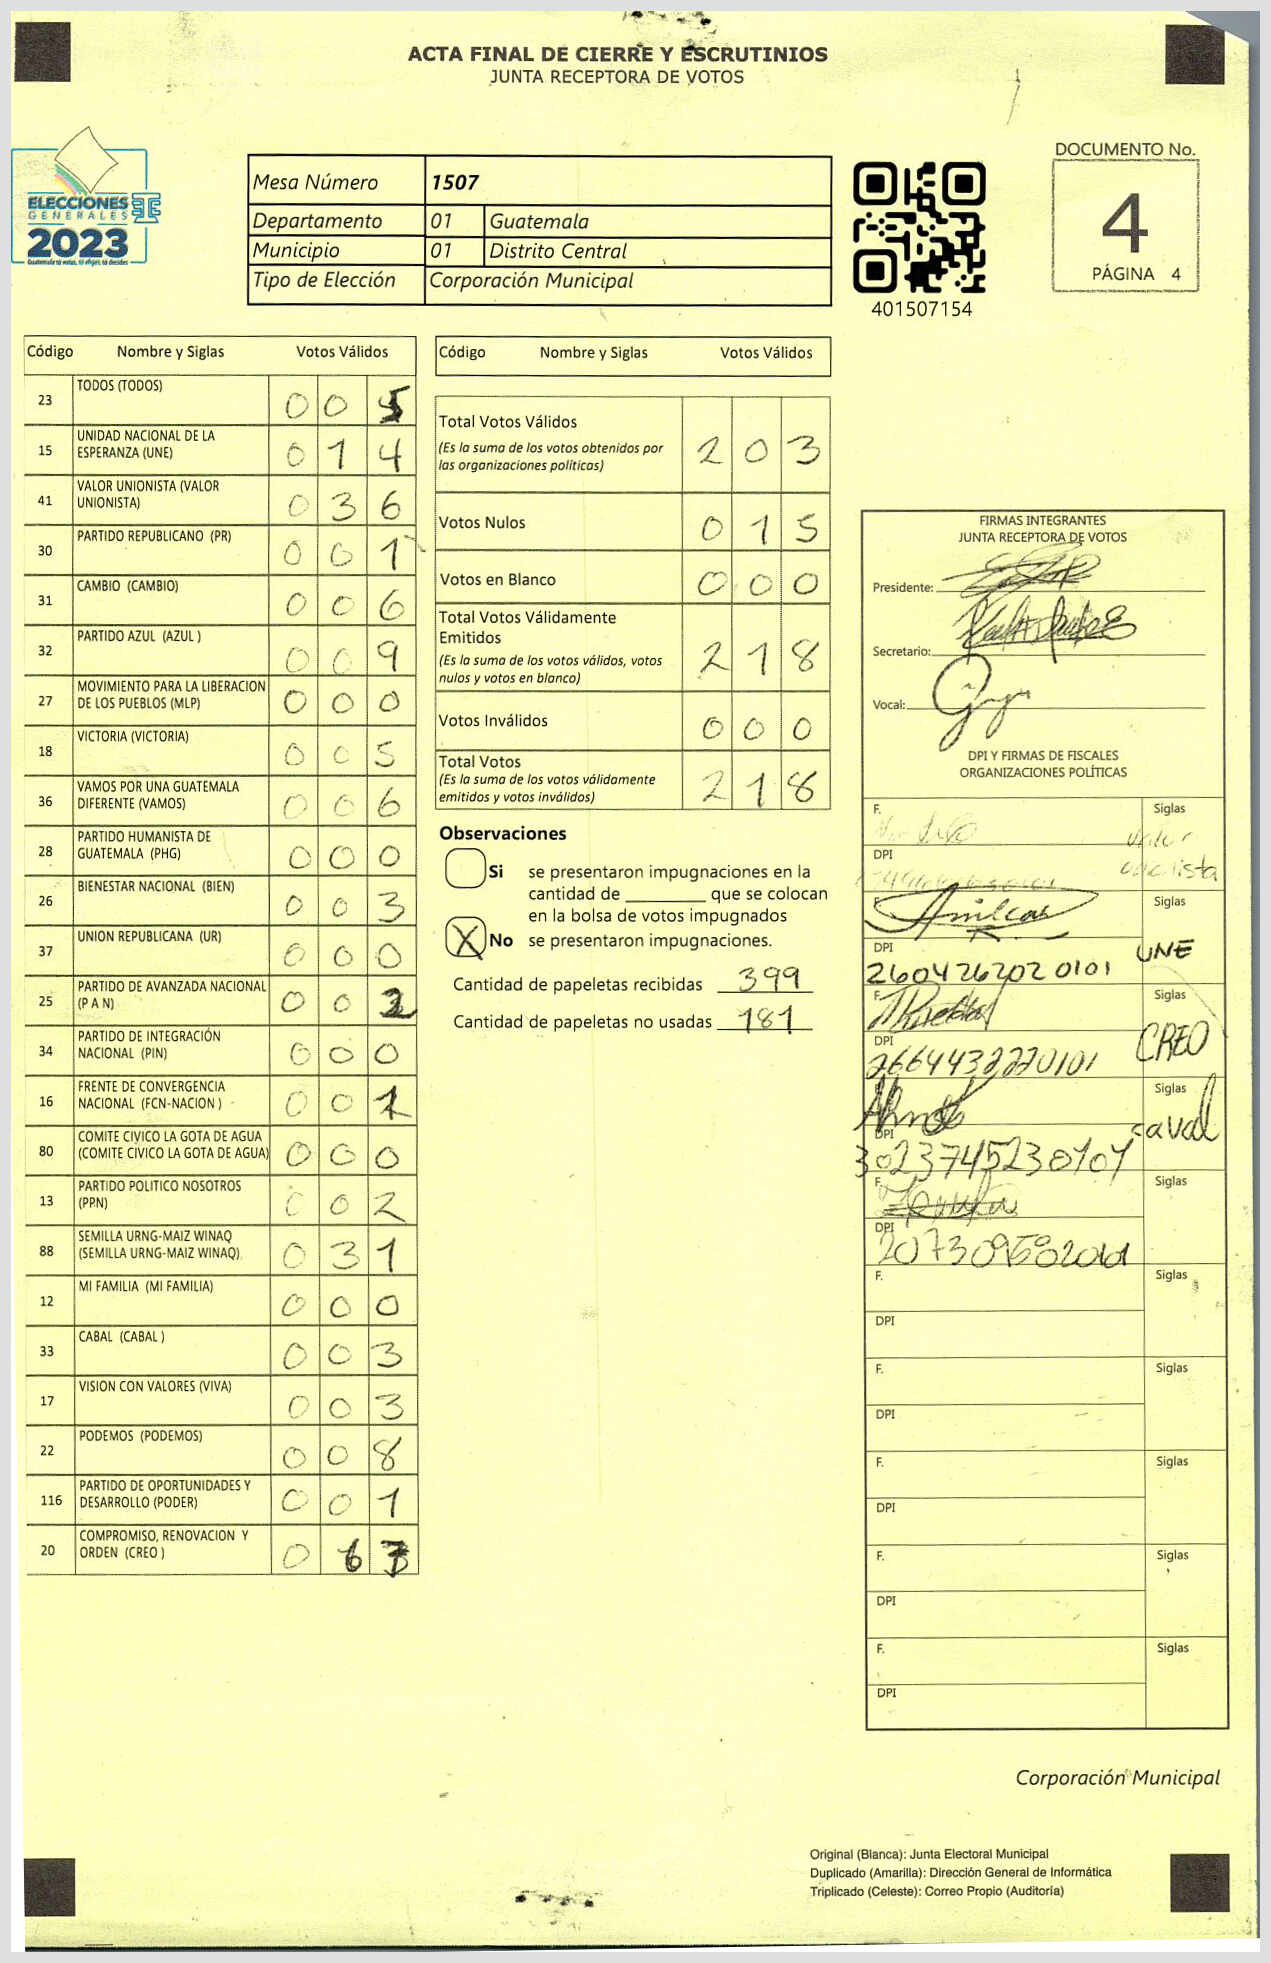 ACTA FINAL DE CIERRE Y ESCRUTINIOS
JUNTA RECEPTORA DE VOTOS
ELECCIONES
GENERALES
2023
Guatemala tú votas, tú eliges, tú decides
Mesa Número 1507
Departamento 01 Guatemala
Municipio 01 Distrito Central
Tipo de Elección Corporación Municipal
401507154
DOCUMENTO No.
4
PÁGINA 4
Código Nombre y Siglas Votos Válidos
23 TODOS (TODOS) 0 0 5
15 UNIDAD NACIONAL DE LA
ESPERANZA (UNE) 0 1 4
41 VALOR UNIONISTA (VALOR
UNIONISTA) 0 3 6
30 PARTIDO REPUBLICANO (PR) 0 0 1
31 CAMBIO (CAMBIO) 0 0 6
32 PARTIDO AZUL (AZUL ) 0 0 9
27 MOVIMIENTO PARA LA LIBERACION
DE LOS PUEBLOS (MLP) 0 0 0
18 VICTORIA (VICTORIA) 0 0 5
36 VAMOS POR UNA GUATEMALA
DIFERENTE (VAMOS) 0 0 6
28 PARTIDO HUMANISTA DE
GUATEMALA (PHG) 0 0 0
26 BIENESTAR NACIONAL (BIEN) 0 0 3
37 UNION REPUBLICANA (UR) 0 0 0
25 PARTIDO DE AVANZADA NACIONAL
(P A N) 0 0 2
34 PARTIDO DE INTEGRACIÓN
NACIONAL (PIN) 0 0 0
16 FRENTE DE CONVERGENCIA
NACIONAL (FCN-NACION ) 0 0 1
80 COMITE CIVICO LA GOTA DE AGUA
(COMITE CIVICO LA GOTA DE AGUA) 0 0 0
13 PARTIDO POLITICO NOSOTROS
(PPN) 0 0 2
88 SEMILLA URNG-MAIZ WINAQ
(SEMILLA URNG-MAIZ WINAQ) 0 3 1
12 MI FAMILIA (MI FAMILIA) 0 0 0
33 CABAL (CABAL ) 0 0 3
17 VISION CON VALORES (VIVA) 0 0 3
22 PODEMOS (PODEMOS) 0 0 8
116 PARTIDO DE OPORTUNIDADES Y
DESARROLLO (PODER) 0 0 1
20 COMPROMISO, RENOVACION Y
ORDEN (CREO ) 0 6 7
Código Nombre y Siglas Votos Válidos
Total Votos Válidos 2 0 3
(Es la suma de los votos obtenidos por
las organizaciones políticas)
Votos Nulos 0 1 5
Votos en Blanco 0 0 0
Total Votos Válidamente
Emitidos 2 1 8
(Es la suma de los votos válidos, votos
nulos y votos en blanco)
Votos Inválidos 0 0 0
Total Votos 2 1 8
(Es la suma de los votos válidamente
emitidos y votos inválidos)
Observaciones
Si se presentaron impugnaciones en la
cantidad de ________ que se colocan
en la bolsa de votos impugnados
X No se presentaron impugnaciones.
Cantidad de papeletas recibidas 399
Cantidad de papeletas no usadas 181
FIRMAS INTEGRANTES
JUNTA RECEPTORA DE VOTOS
Presidente:
Secretario:
Vocal:
DPI Y FIRMAS DE FISCALES
ORGANIZACIONES POLÍTICAS
F. Siglas
DPI
F. Amilcar Siglas
DPI UNE
2604262020101
F. Siglas
DPI CREO
2664432220101
Siglas
DPI
3023745230101
F. Siglas
DPI
F. Siglas
DPI
F. Siglas
DPI
F. Siglas
DPI
F. Siglas
DPI
F. Siglas
DPI
Corporación Municipal
Original (Blanca): Junta Electoral Municipal
Duplicado (Amarilla): Dirección General de Informática
Triplicado (Celeste): Correo Propio (Auditoría)